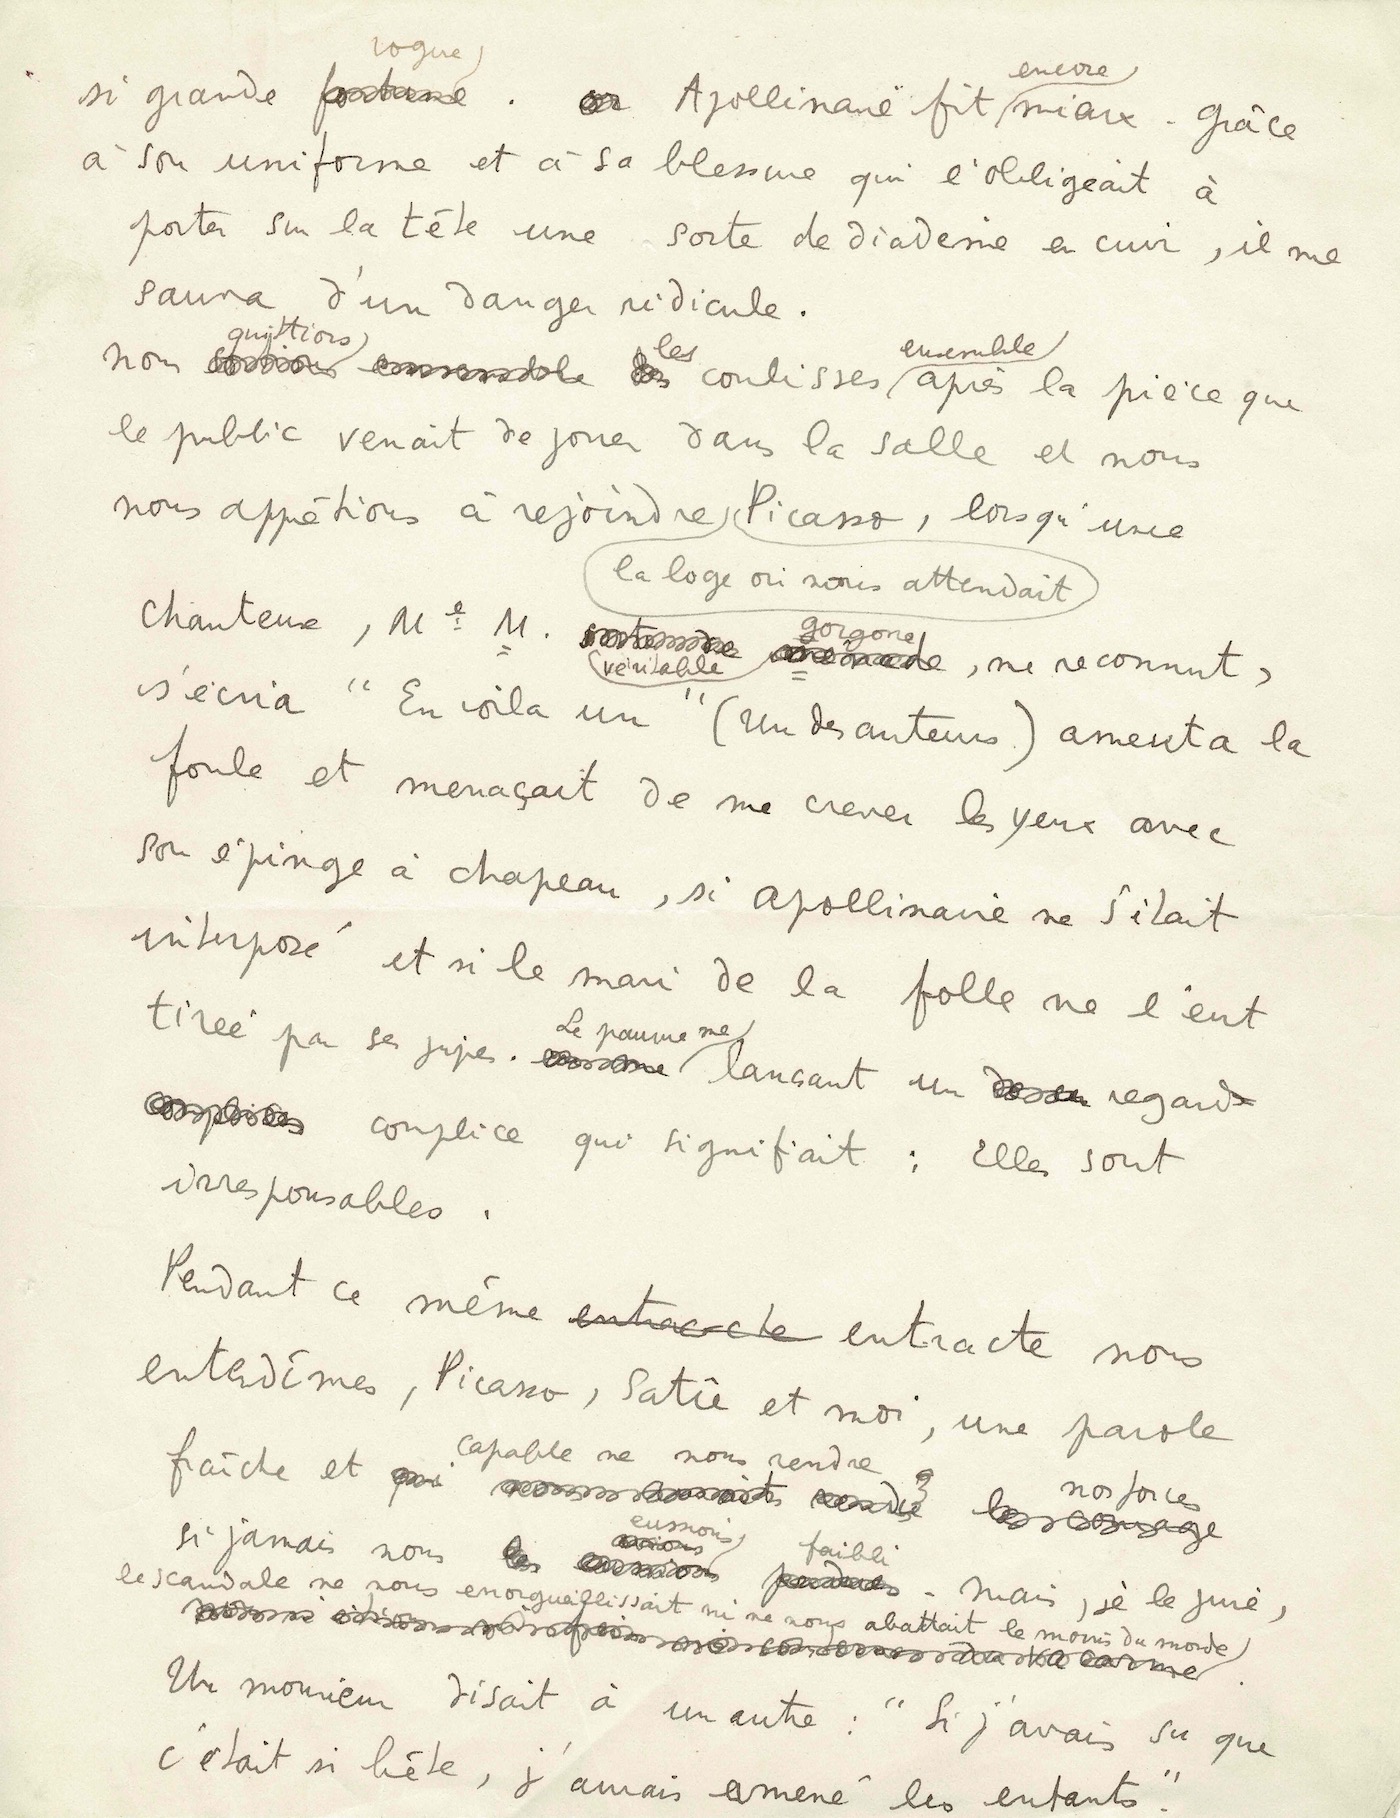 vogue
si grande fortune. Apollinaire fit encore mieux. Grâce
à son uniforme et à sa blessure qui l'obligeait à
porter sur la tête une sorte de diadème en cuir, il me
sauva d'un danger ridicule.
nous quittions les coulisses ensemble après la pièce que
le public venait de jouer dans la salle et nous
nous apprêtions à rejoindre Picasso, lorsqu'une
la loge où nous attendait
chanteuse, Me M. véritable gorgone, me reconnut,
s'écria "En voila un" (un des auteurs) ameuta la
foule et menaçait de me crever les yeux avec
son épinge à chapeau, si Apollinaire ne s'était
interposé et si le mari de la folle ne l'eut
tireé par ses jupes. Le pauvre me lançant un regard
complice qui signifiait : Elles sont
irresponsables.
Pendant ce même entracte entracte nous
entendîmes, Picasso, Satie et moi, une parole
fraîche et capable ne nous rendre nos forces
si jamais nous eussions faibli. Mais, je le jure,
le scandale ne nous enorgueillissait ni ne nous abattait le moins du monde.
Un monsieur disait à un autre : "Si j'avais su que
c'était si bête, j'aurais amené les enfants".